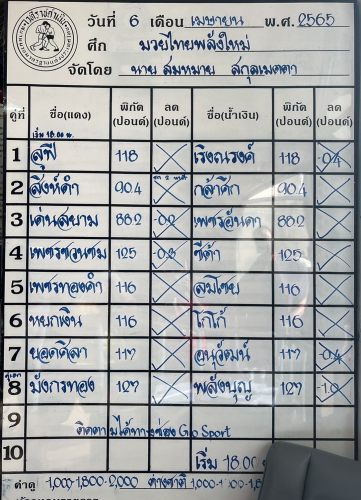 วันที่ 6 เดือน เมษายน พ.ศ. 2565
ศึก มวยไทยพลังใหม่
จัดโดย นาย สมหมาย สกุลเมตตา
คู่ที่ ชื่อ(แดง) พิกัด (ปอนด์) ลด (ปอนด์) ชื่อ(น้ำเงิน) พิกัด (ปอนด์) ลด (ปอนด์)
เริ่ม 18.00 น.
1 สุฟี 118 เริงณรงค์ 118 -0.4
2 สิงห์ดำ 90.4 กล้าศึก 90.4
3 เด่นสยาม 88.2 -0.2 เพชรอันดา 88.2
4 เพชรชวนชม 125 -0.8 ซีต้า 125
5 เพชรทองคำ 116 สมโชย 116
6 หยกเงิน 116 โกโก้ 116
7 ยอดศิลา 117 อนุวัฒน์ 117 -0.4
คู่เอก
8 มังกรทอง 127 พลังบุญ 127 -1.0
9 ติดตามได้ทางช่อง Gio Sport
10 เริ่ม 18.00
ค่าดู 1,000-1,800-2,000 ต่างชาติ 1,000-1,800-1,8